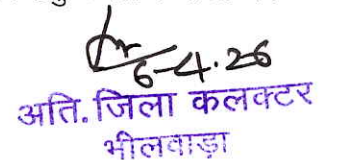 6-4.26
अति. जिला कलक्टर
भीलवाड़ा